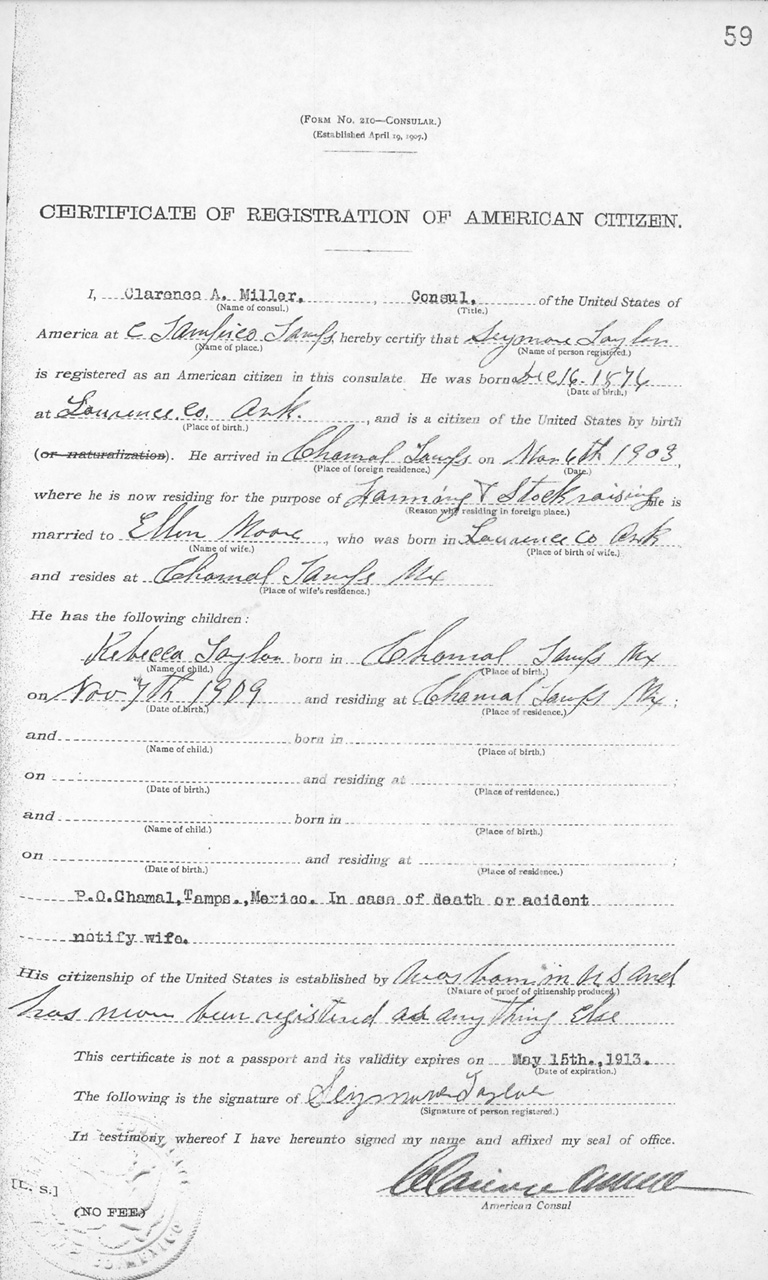 59
(FORM NO. 210—CONSULAR.)
(Established April 19, 1907.)
CERTIFICATE OF REGISTRATION OF AMERICAN CITIZEN.
I, Clarence A. Miller, Consul, of the United States of
(Name of consul.) (Title.)
America at Tampico Tamps, hereby certify that Seymore Taylor
(Name of place.) (Name of person registered.)
is registered as an American citizen in this consulate. He was born Dec 16-1876
(Date of birth.)
at Lawrence, Co, Ark. , and is a citizen of the United States by birth
(Place of birth.)
(or naturalization). He arrived in Chamal Tamps on 6th 1903,
(Place of foreign residence.) (Date.)
where he is now residing for the purpose of Farming & Stockraising He is
(Reason why residing in foreign place.)
married to Ellen Moore , who was born in Lawrence Co Ark
(Name of wife.) (Place of birth of wife.)
and resides at Chamal Tamps Mx
(Place of wife's residence.)
He has the following children:
Rebecca Taylor born in Chamal Tamps Mx
(Name of child.) (Place of birth.)
on Nov 7th 1909 and residing at Chamal Tamps Mx ;
(Date of birth.) (Place of residence.)
and born in
(Name of child.) (Place of birth.)
on and residing at ;
(Date of birth.) (Place of residence.)
and born in
(Name of child.) (Place of birth.)
on and residing at ;
(Date of birth.) (Place of residence.)
P.O.Chamal,Tamps.,Mexico. In case of death or acident
notify wife.
His citizenship of the United States is established by was born in U S and
(Nature of proof of citizenship produced.)
has never been registered as any thing Else
This certificate is not a passport and its validity expires on May 15th.,1913.
(Date of expiration.)
The following is the signature of Seymore Taylor
(Signature of person registered.)
In testimony whereof I have hereunto signed my name and affixed my seal of office.
[L. S.]
Clarence A Miller
American Consul
(NO FEE)